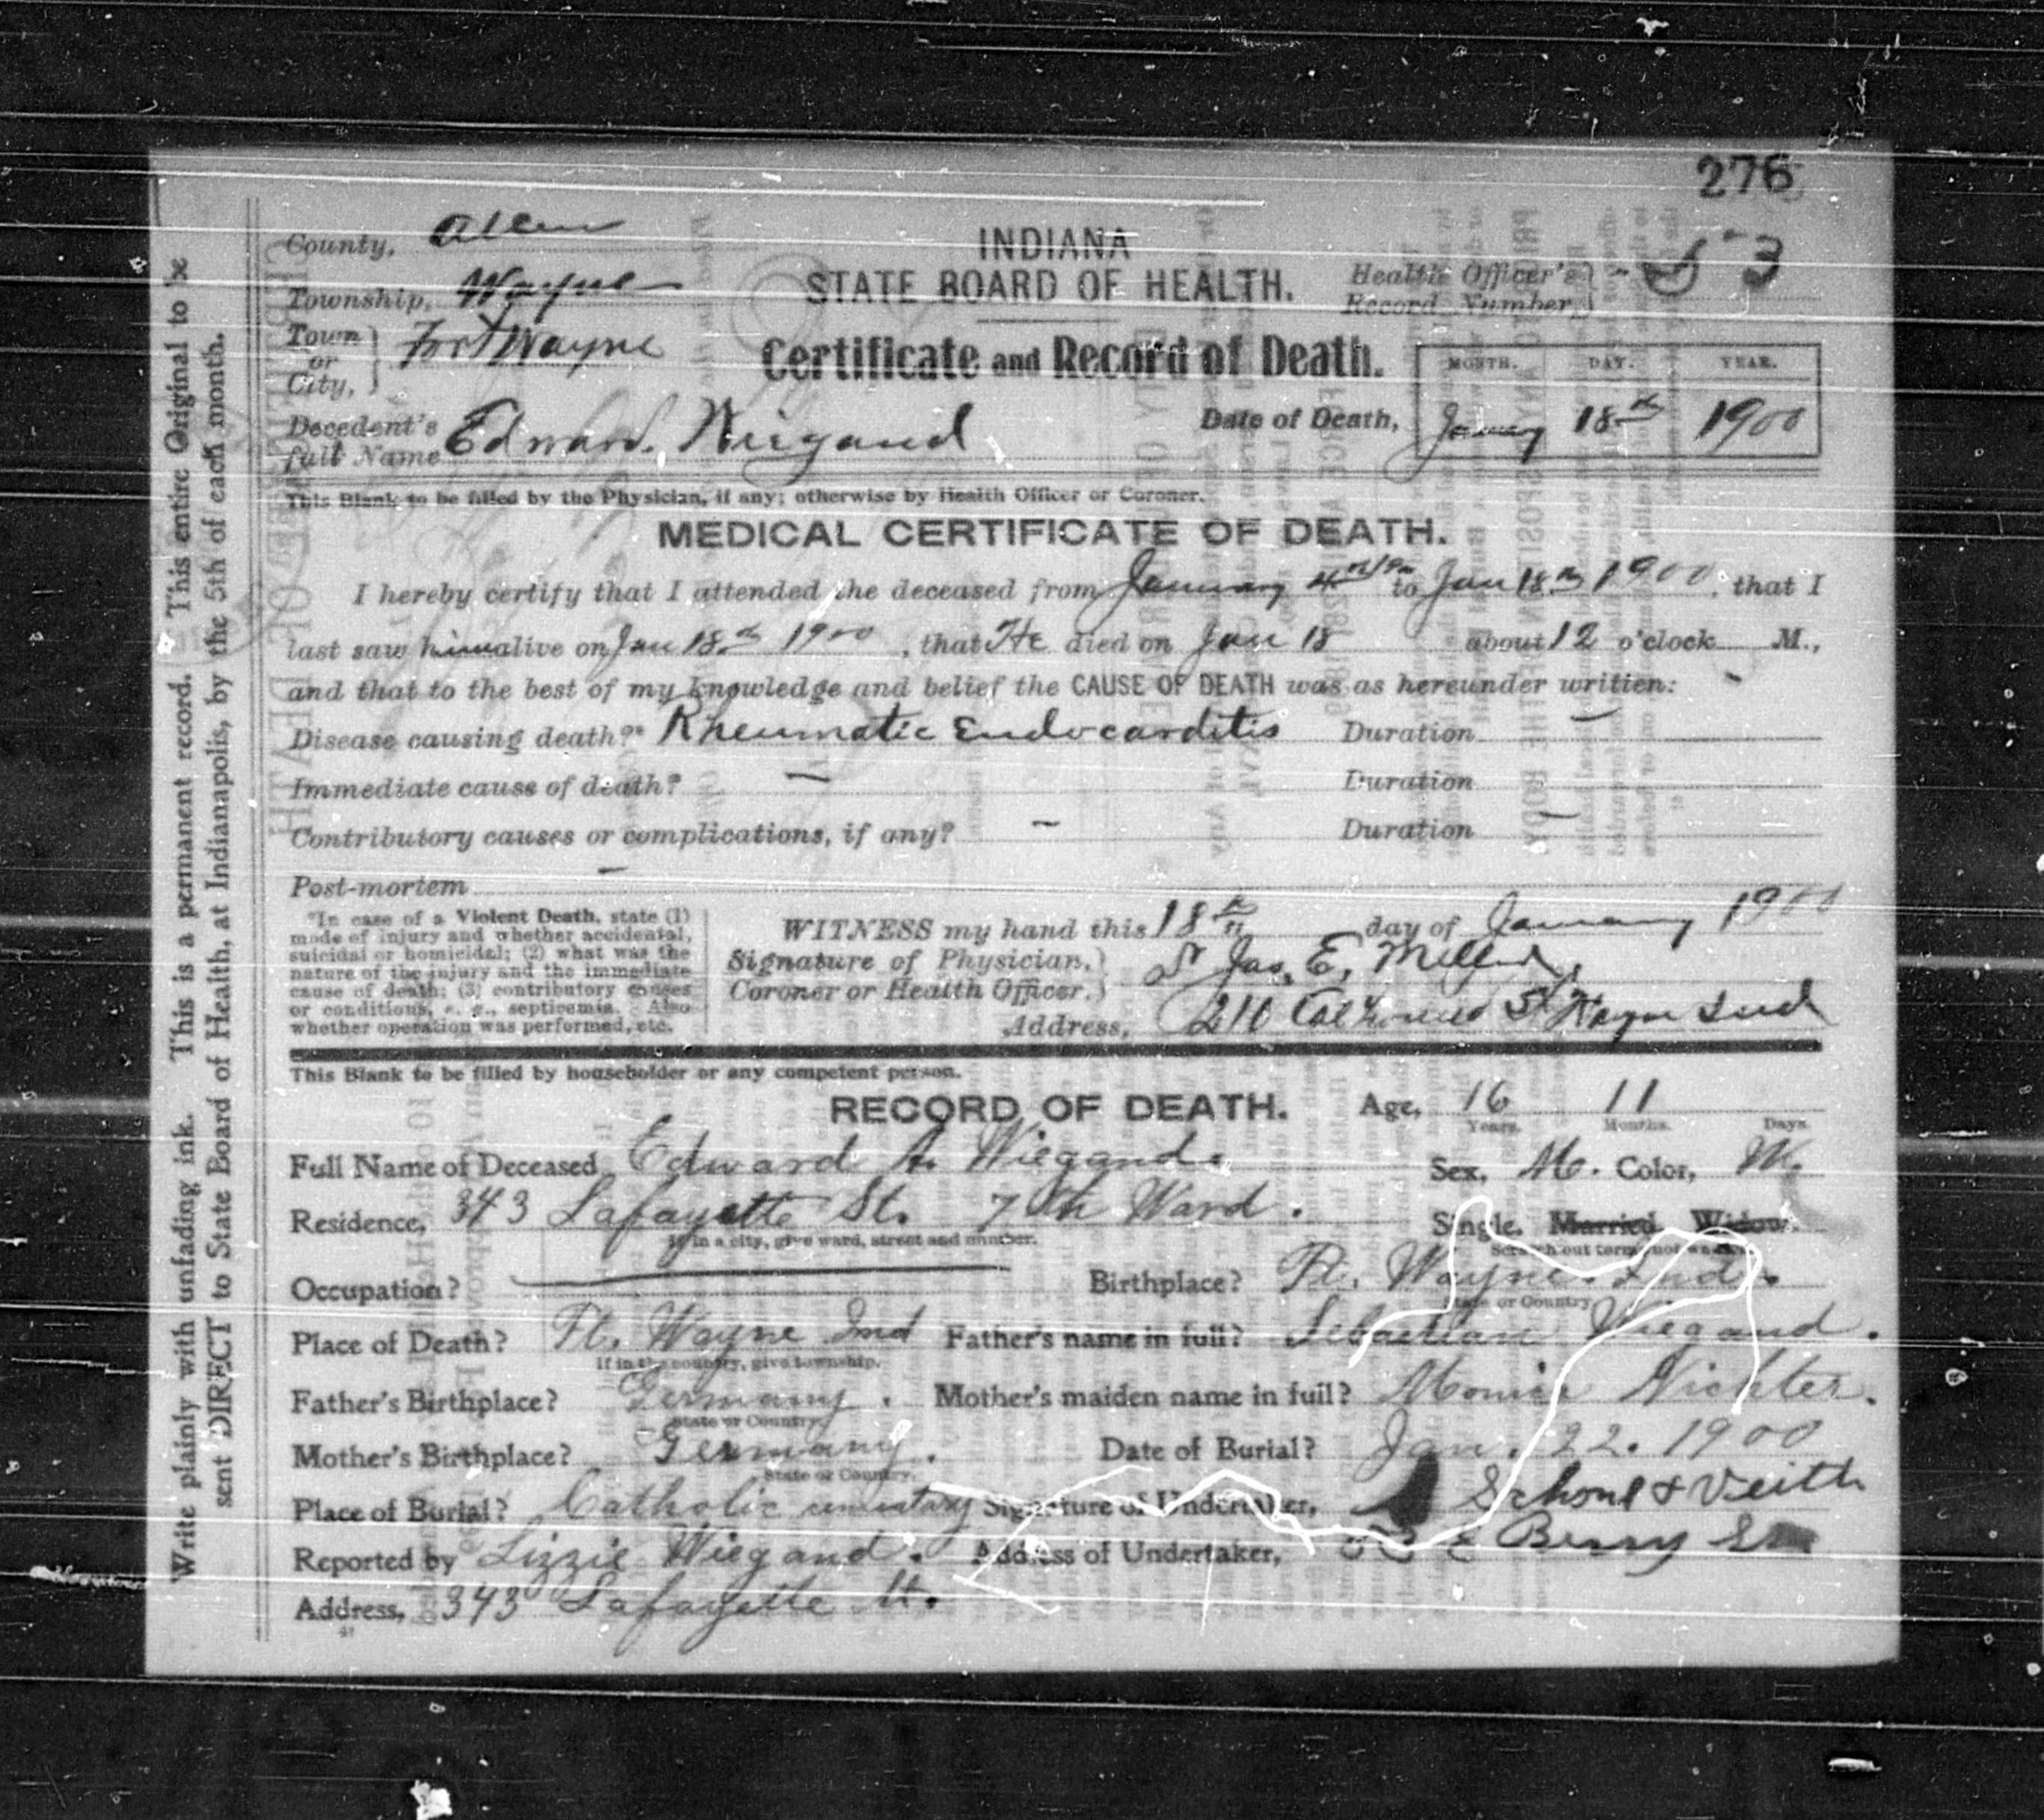 276
County, Allen
Township, Wayne
Town or City, Fort Wayne
INDIANA
STATE BOARD OF HEALTH.
Health Officer's Record Number, 53
Certificate and Record of Death.
MONTH. DAY. YEAR.
Decedent's full Name Edward Wiegand Date of Death, January 18th 1900
This Blank to be filled by the Physician, if any; otherwise by Health Officer or Coroner.
MEDICAL CERTIFICATE OF DEATH.
I hereby certify that I attended the deceased from January 4th to Jan 18th 1900, that I
last saw him alive on Jan 18th 1900, that He died on Jan 18 about 12 o'clock M.,
and that to the best of my knowledge and belief the CAUSE OF DEATH was as hereunder written:
Disease causing death?* Rheumatic Endocarditis Duration –
Immediate cause of death? – Duration
Contributory causes or complications, if any? – Duration –
Post-mortem –
*In case of a Violent Death, state (1)
mode of injury and whether accidental,
suicidal or homicidal; (2) what was the
nature of the injury and the immediate
cause of death; (3) contributory causes
or conditions, e. g., septicemia. Also
whether operation was performed, etc.
WITNESS my hand this 18th day of January 1900
Signature of Physician, Coroner or Health Officer. Jas. E.
Address, Calhoun St Ft Wayne Ind
This Blank to be filled by householder or any competent person.
RECORD OF DEATH. Age, 16 Years. 11 Months. Days.
Full Name of Deceased Edward A. Wiegand. Sex, M. Color, W.
Residence, 343 Lafayette St. 7th Ward. Single. Married. Widow.
If in a city, give ward, street and number. Scratch out terms not wanted.
Occupation? Birthplace? Ft. Wayne. Ind.
State or Country
Place of Death? Ft. Wayne Ind Father's name in full? Sebastian Wiegand.
If in the country, give township.
Father's Birthplace? Germany. Mother's maiden name in full? Monica Nichter.
State or Country.
Mother's Birthplace? Germany. Date of Burial? Jan. 22. 1900
State or Country.
Place of Burial? Catholic cemetary Signature of Undertaker, Schone & Veith
Reported by Lizzie Wiegand. Address of Undertaker, E Berry St
Address, 343 Lafayette St.
Write plainly with unfading ink. This is a permanent record. This entire Original to be
sent DIRECT to State Board of Health, at Indianapolis, by the 5th of each month.